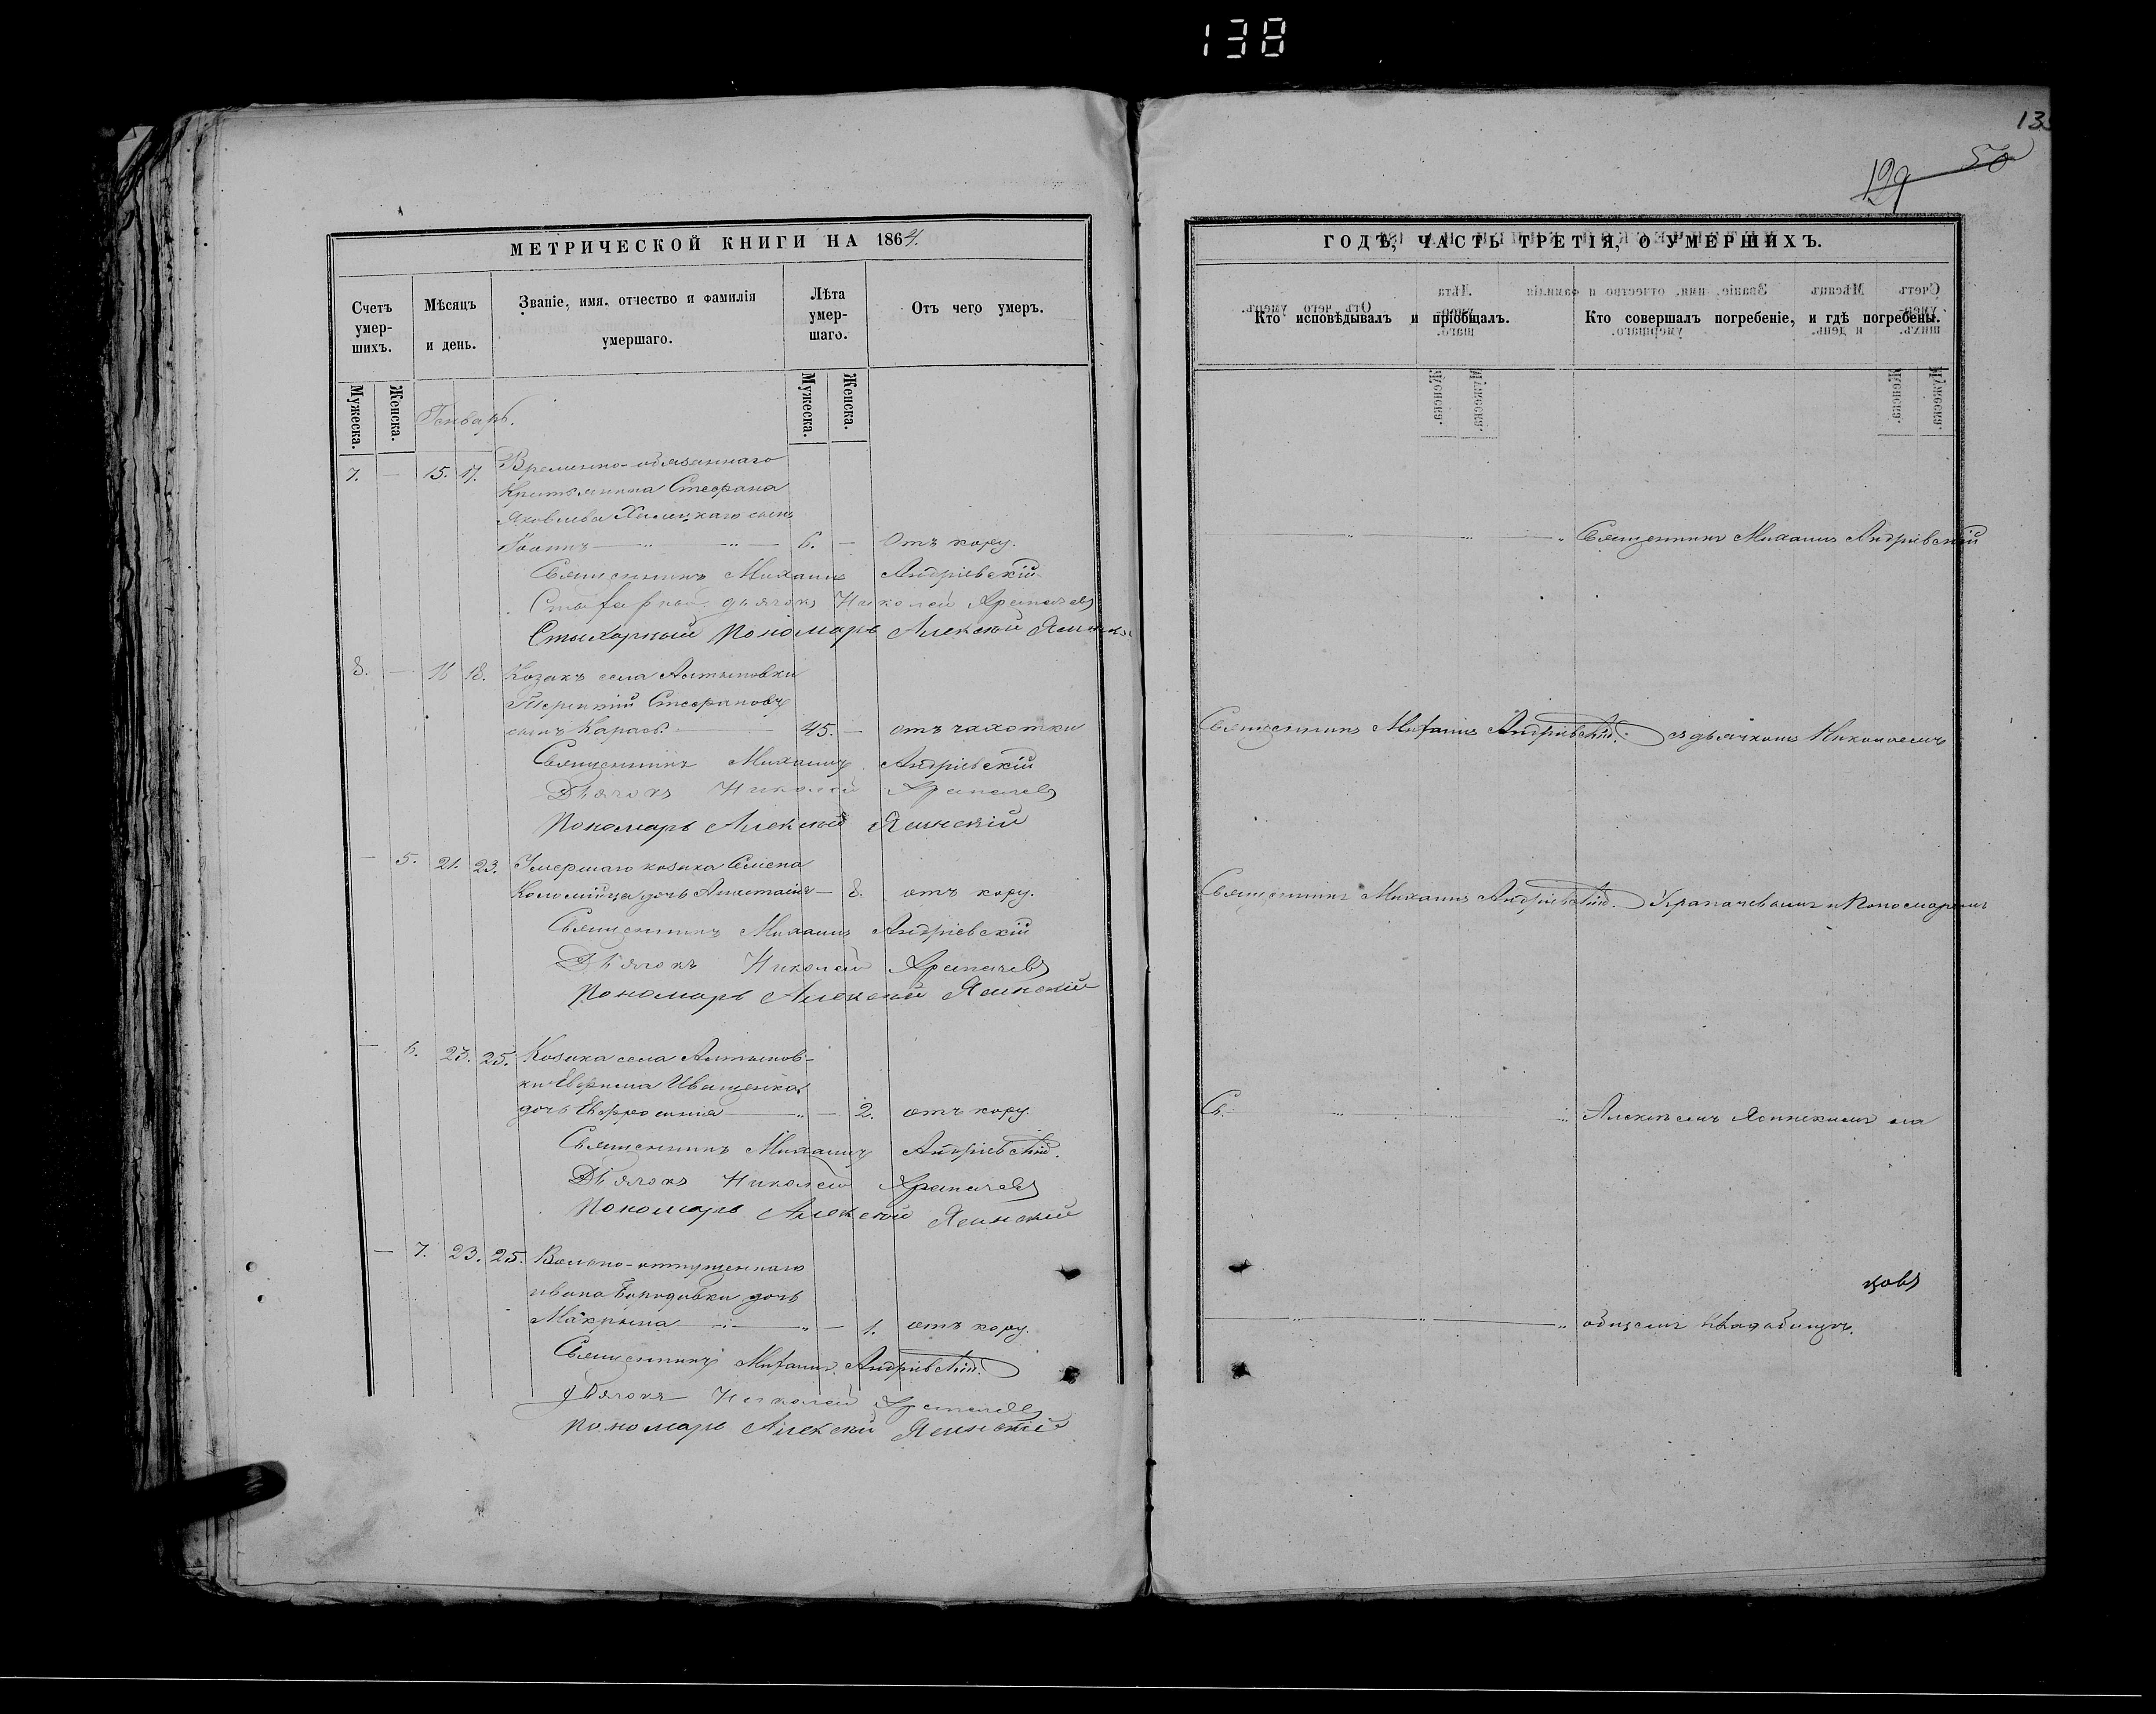 138
13
129 50
МЕТРИЧЕСКОЙ КНИГИ НА 1864.
Счетъ умер-шихъ.
Мѣсяцъ и день.
Званіе, имя, отчество и фамилія умершаго.
Лѣта умер-шаго.
Отъ чего умеръ.
Мужеска. Женска. Мужеска. Женска.
Генварь.
7. — 15. 17. Временно-обязаннаго
Крестьянина Стефана
Яковлева Халецкаго сынъ
Іоаннъ — 6. — Отъ кору.
Священникъ Михаилъ Андріевскій
Стихарный дьячокъ Николай Храпачевъ
Стихарный Пономарь Алексѣй Ясинскій
8. — 16 18. Козакъ села Алтыновки
Терентій Стефановъ
сынъ — 45. — отъ чахотки
Священникъ Михаилъ Андріевскій
Дьячокъ Николай Храпачевъ
Пономарь Алексѣй Ясинскій
— 5. 21. 23. Умершаго козака Семена
Коломійца дочь Анастасія — 8. отъ кору.
Священникъ Михаилъ Андріевскій
Дьячокъ Николай Храпачевъ
Пономарь Алексѣй Ясинскій
— 6. 23. 25. Козака села Алтынов-
ки Евфима Иващенка
дочь Евфросинія — 2. отъ кору.
Священникъ Михаилъ Андріевскій.
Дьячокъ Николай Храпачевъ
Пономарь Алексѣй Ясинскій
— 7. 23. 25. Вольно-отпущеннаго
Ивана Бородавки дочь
Макрина — 1. отъ кору.
Священникъ Михаилъ Андріевскій.
Дьячокъ Николай Храпачевъ
Пономарь Алексѣй Ясинскій
ГОДЪ, ЧАСТЬ ТРЕТІЯ, О УМЕРШИХЪ.
Кто исповѣдывалъ и пріобщалъ.
Кто совершалъ погребеніе, и гдѣ погребены.
Священникъ Михаилъ Андріевскій
Священникъ Михаилъ Андріевскій. съ дьячкомъ Николаемъ
Священникъ Михаилъ Андріевскій. Храпачевымъ и Пономаремъ
Алексѣемъ Ясинскимъ на
общемъ кладбищѣ.